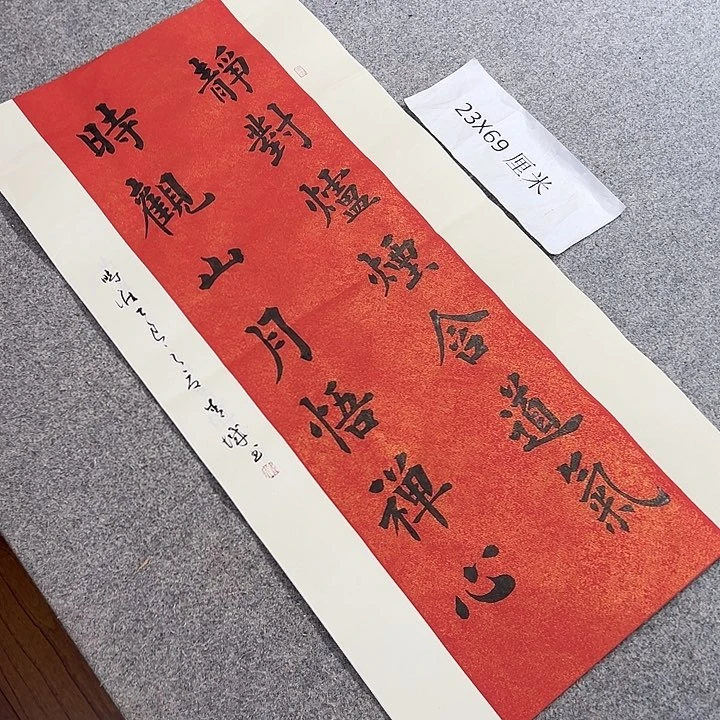 靜對爐煙含道氣
時觀山月悟禪心
時在乙巳
23X69厘米